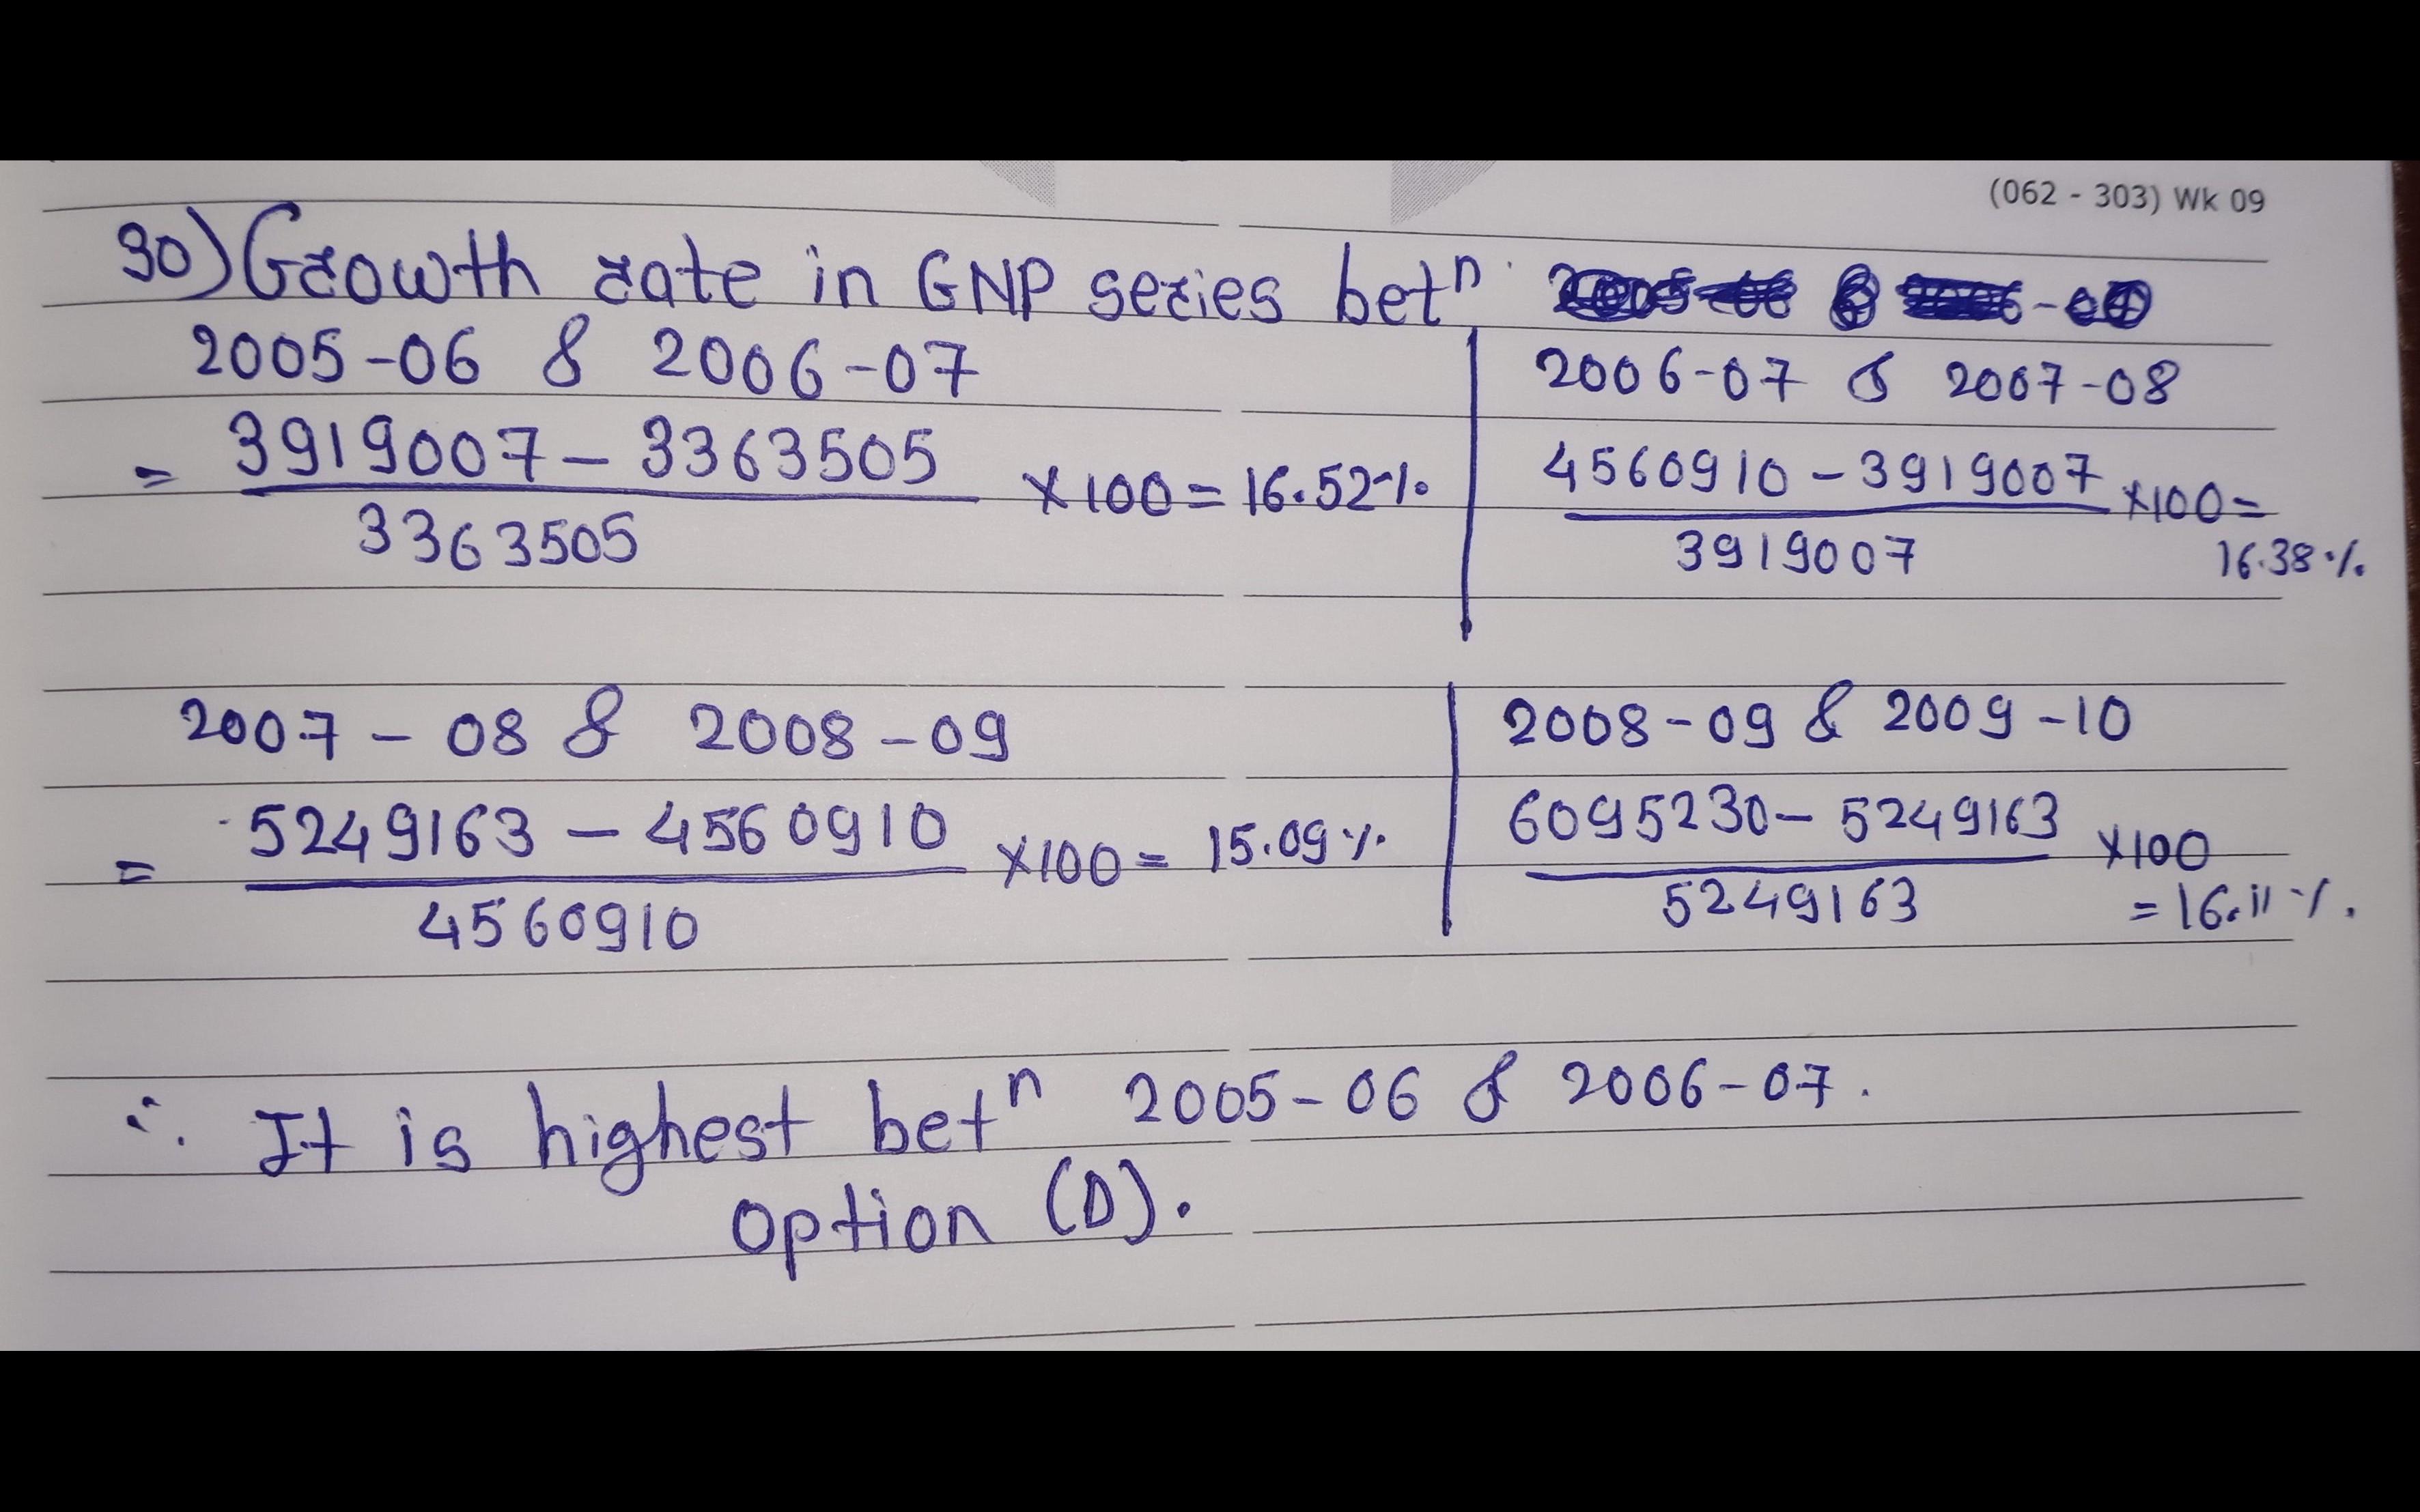 (062 - 303) Wk 09
30) Growth rate in GNP series betn
2005-06 & 2006-07
= 3919007 - 3363505 / 3363505 ×100 = 16.52%
2006-07 & 2007-08
4560910 - 3919007 / 3919007 ×100 =
16.38%
2007-08 & 2008-09
= 5249163 - 4560910 / 4560910 ×100 = 15.09%
2008-09 & 2009-10
6095230 - 5249163 / 5249163 ×100
= 16.11%.
∴ It is highest betn 2005-06 & 2006-07.
option (D).